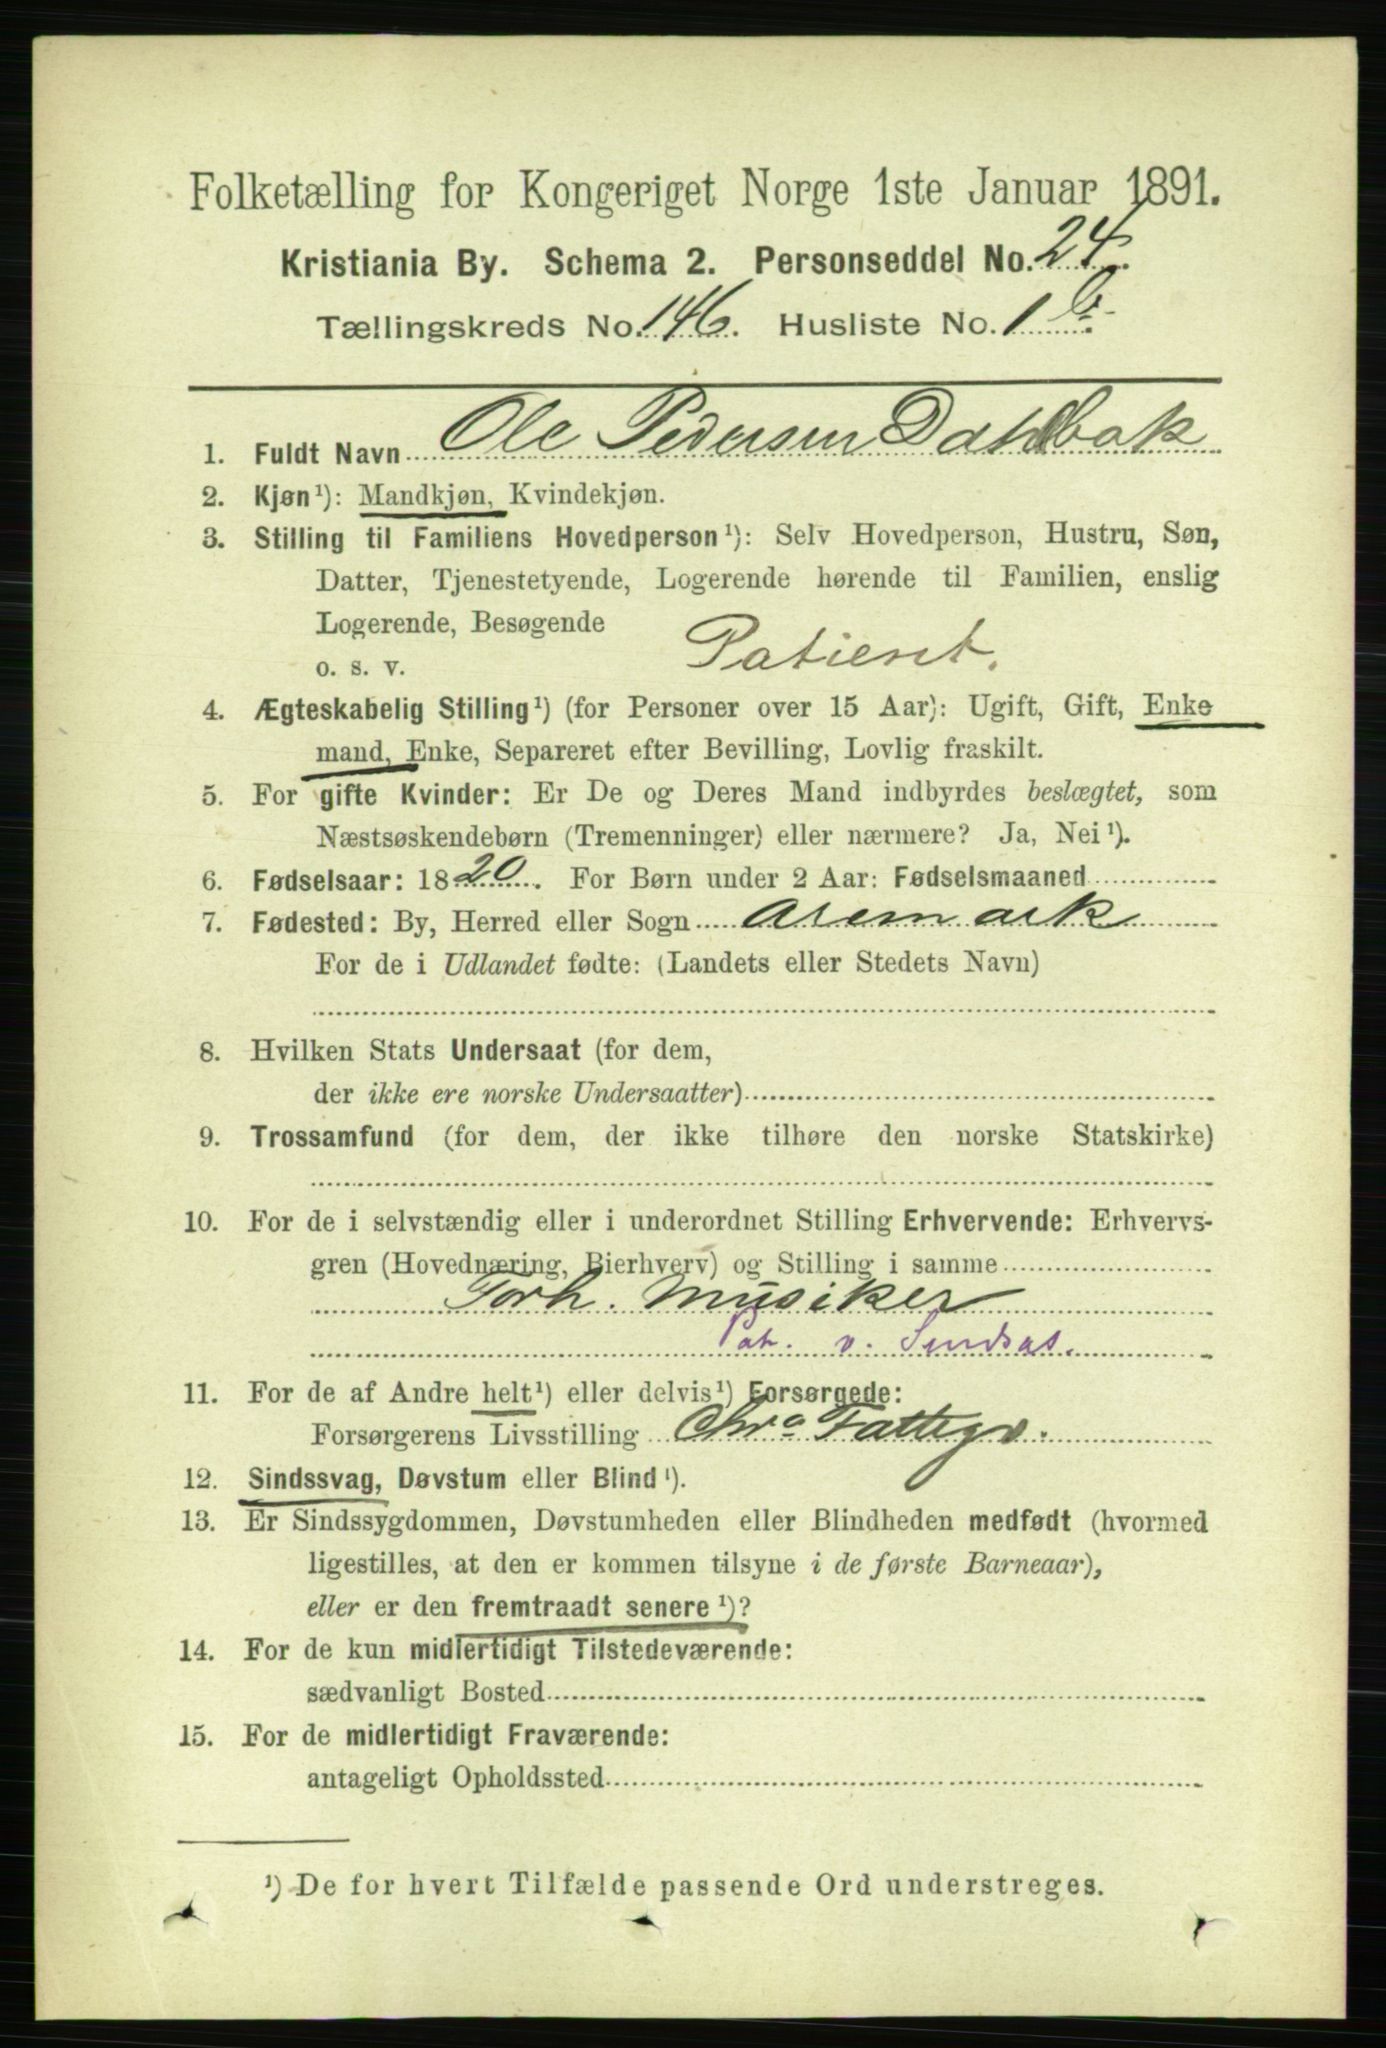 Folketælling for Kongeriget Norge 1ste Januar 1891.
Kristiania By. Schema 2. Personseddel No. 24.
Tællingskreds No. 146. Husliste No. 1
1. Fuldt Navn Ole Pedersen Dahlbak
2. Kjøn¹): Mandkjøn, Kvindekjøn.
3. Stilling til Familiens Hovedperson¹): Selv Hovedperson, Hustru, Søn,
Datter, Tjenestetyende, Logerende hørende til Familien, enslig
Logerende, Besøgende
o. s. v. Patient.
4. Ægteskabelig Stilling¹) (for Personer over 15 Aar): Ugift, Gift, Enke
mand, Enke, Separeret efter Bevilling, Lovlig fraskilt.
5. For gifte Kvinder: Er De og Deres Mand indbyrdes beslægtet, som
Næstsøskendebørn (Tremenninger) eller nærmere? Ja, Nei¹).
6. Fødselsaar: 1820. For Børn under 2 Aar: Fødselsmaaned
7. Fødested: By, Herred eller Sogn Aremark
For de i Udlandet fødte: (Landets eller Stedets Navn)
8. Hvilken Stats Undersaat (for dem,
der ikke ere norske Undersaatter)
9. Trossamfund (for dem, der ikke tilhøre den norske Statskirke)
10. For de i selvstændig eller i underordnet Stilling Erhvervende: Erhvervs-
gren (Hovednæring, Bierhverv) og Stilling i samme
Forh. Musiker
Pat. v. Sindsas.
11. For de af Andre helt¹) eller delvis¹) Forsørgede:
Forsørgerens Livsstilling Chra Fattigv.
12. Sindssvag, Døvstum eller Blind¹).
13. Er Sindssygdommen, Døvstumheden eller Blindheden medfødt (hvormed
ligestilles, at den er kommen tilsyne i de første Barneaar),
eller er den fremtraadt senere¹)?
14. For de kun midlertidigt Tilstedeværende:
sædvanligt Bosted
15. For de midlertidigt Fraværende:
antageligt Opholdssted
¹) De for hvert Tilfælde passende Ord understreges.